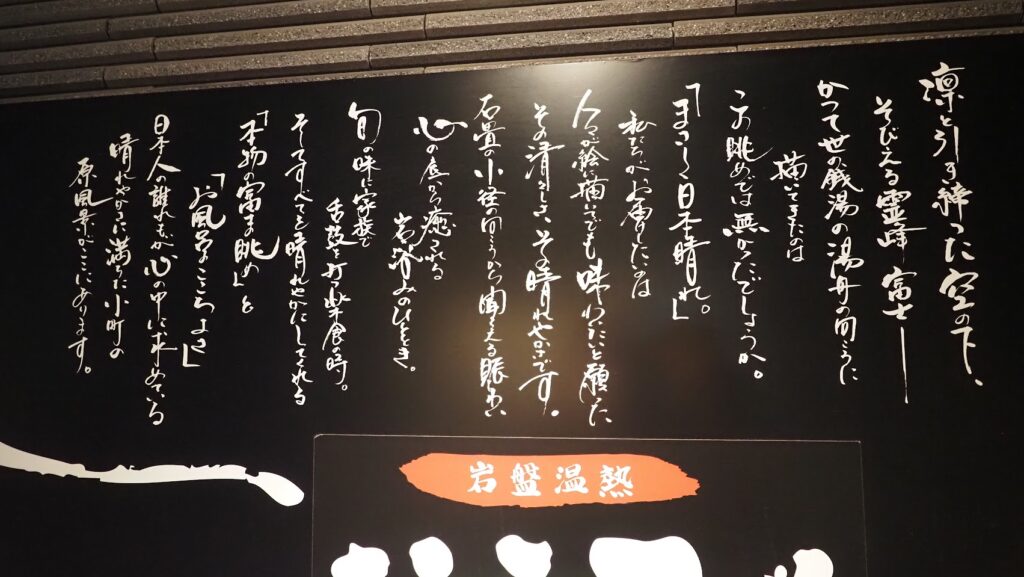 凛と引き締った空の下、
そびえる霊峰 富士――
かつて世の銭湯の湯舟の向うに
描いてきたのは
この眺めでは無かったでしょうか。
「まさしく日本晴れ。」
私たちがお届けしたいのは
人々が絵に描いてでも味わいたいと願った
その清々しさ、その晴れやかさです。
石畳の小径の向うから聞こえる賑わい
心の底から癒される
岩浴みのひととき。
旬の味に家族で
舌鼓を打つ楽食の時。
そのすべてを晴れやかにしてくれる
「本物の富士の眺め」と
「お風呂のここちよさ」
日本人の誰もが心の中に求めている
晴れやかさに満ちた小町の
原風景がここにあります。
岩盤温熱